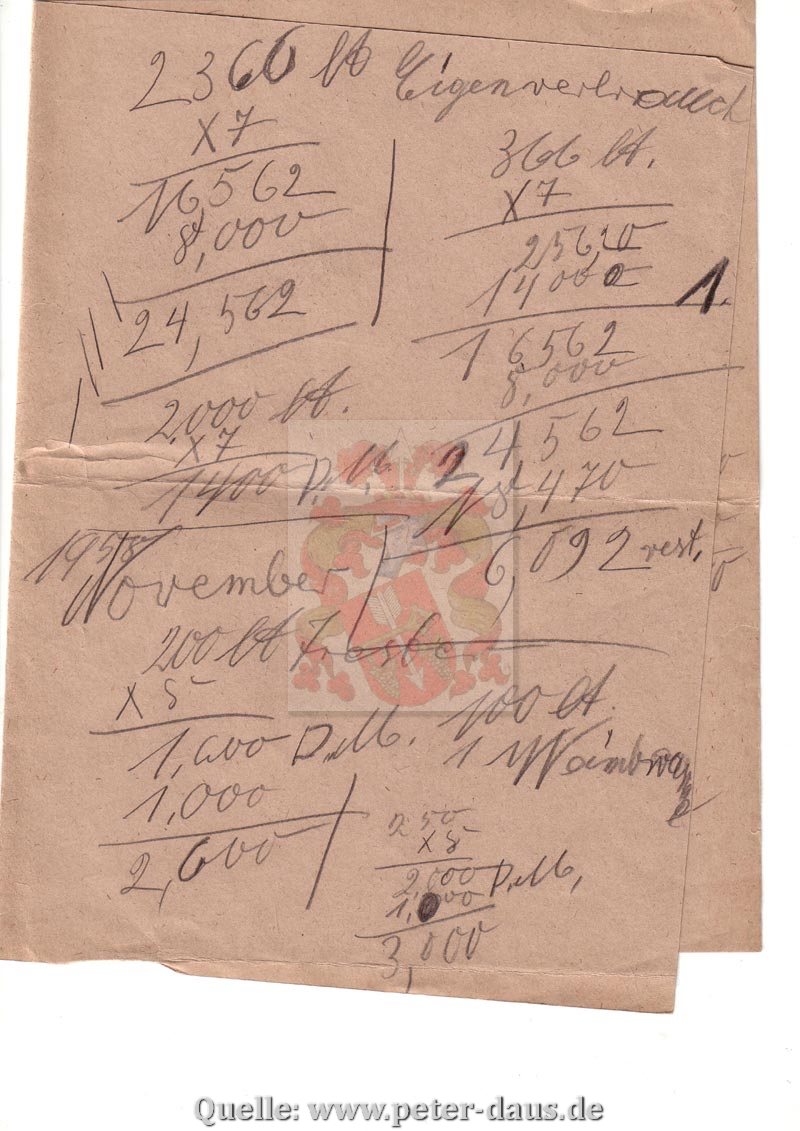 2366 lt Eigenverbrauch
X 7
16562
8,000
24,562
366 lt.
X 7
25620
14000
1.
16562
8,000
24562
18,470
6,092 rest.
2000 lt.
X 7
1400 D.M.
1958
November
200 lt
X 8
1,600 D.M.
1,000
2,600
100 lt.
1
250
X 8
2,000 D.M.
1,000
3,000
Quelle: www.peter-daus.de